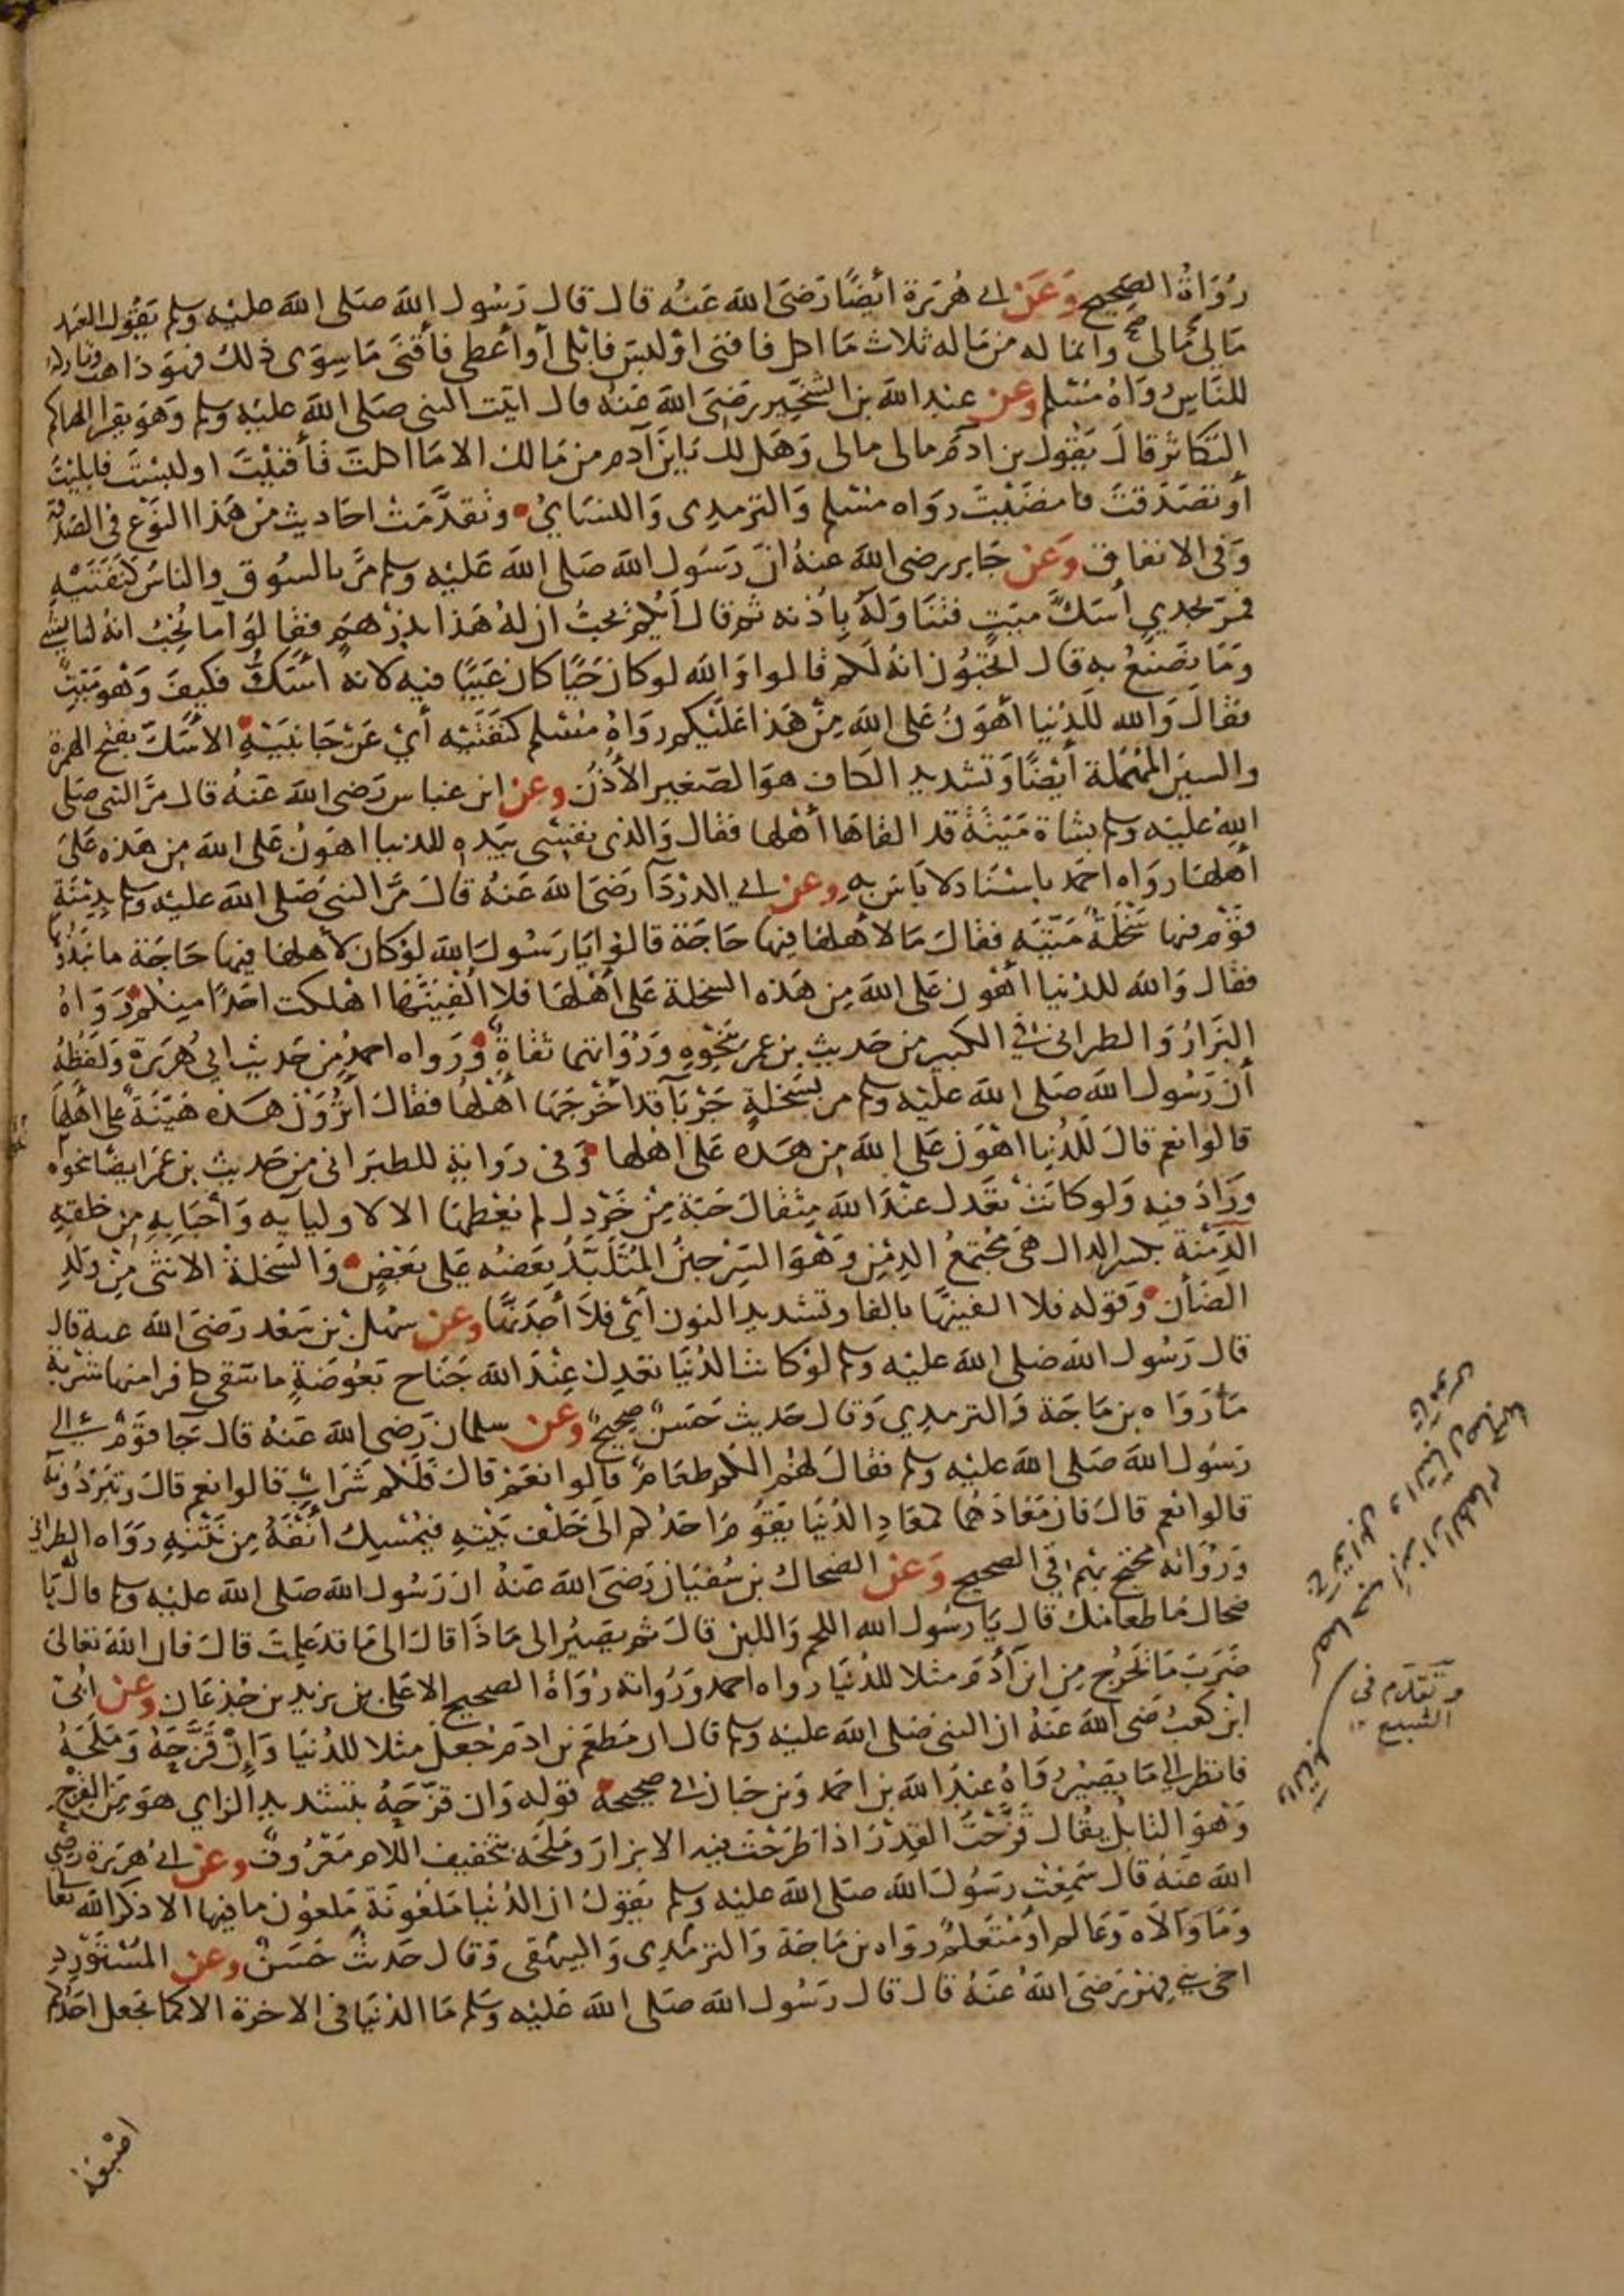 رُوَاةُ الصحيح وَعَنْ ابى هُرَيرة ايضًا رَضىَ الله عَنْه قال قال رَسُول الله صَلى الله عليْه وسلم يَقُول العَبد
مَالى مَالى وانما له من مَاله ثلاث مَا اكل فافنى اوْ لبسَ فابْلى أوْ أعْطى فأقنىَ مَا سِوَى ذلك فهوَ ذاهب وتاركه
للنَّاس رَوَاهُ مسْلم وعن عبْد الله بن الشخِّير رَضىَ الله عَنْه قال اتيْت النبى صَلى الله عليْه وسلم وَهوَ يقرا الهاكم
التكاثر قالَ يَقول بن ادَم مالى مالى وَهَل لك يَا بنَ آدم من مَالك الا مَا اكلتَ فَأفنيْتَ او لبسْتَ فابليْتَ
أوْ تصَدقتَ فامضَيْتَ رواه مسْلم وَالترمدى وَالنسَاىُ وتقدَّمَتْ احَاديث منْ هَذا النوَع فى الصَدقة
وَفى الانفاق وَعَنْ جَابر رضى الله عنهُ انّ رَسُول الله صَلى الله عَليْه وسلم مَرَّ بالسُوق والناسُ كنَفَتَيْهِ
فمرّ بجدي أسَكَّ ميّتٍ فتَنَاوَلهُ بِأذنه ثم قالَ أيُّكم يُحبُّ ان لهُ هَذا بدرْهَمٍ فقالوا مَا نُحِبُّ انهُ لنا بشَىء
وَمَا نَصْنَعُ به قال اتحبّوُن انهُ لَكم قالوا وَالله لو كان حَيًّا كان عَيْبًا فيه لانه أسَكُّ فكيفَ وَهْو مَيّتٌ
فقالَ وَالله لَلدُّنيا أهْوَنُ عَلى الله مِنْ هَذا عَليْكم رواهُ مُسْلم كنَفَتيْه أيْ عَنْ جَانبَيْهِ الأسَكّ بفتح الهمزة
والسين المُهْمَلة أيْضًا وَتشديد الكاف هوَ الصَغير الأُذُن وعن ابن عبَاس رَضىَ الله عَنْهُ قال مَرَّ النبى صَلى
اللهِ عليْه وسلم بشاة مَيتَة قد القاهَا أهْلها فقال وَالذى نفسْى بيَده للدنيا اهْوَنُ عَلى الله من هَذه عَلىَ
أهلهَا رواه احمَد باسْنَاد لا بَاسَ به وعن ابي الدرْدَآ رَضىَ الله عَنْهُ قالَ مَرَّ النبى صَلى الله عليْه وسلم بدِمْنَةِ
قوْم فيها سَخْلةٌ مَيّتَه فقالَ مَا لاهْلهَا فيها حَاجَة قالوْا يَا رسُولَ الله لوْ كان لأهلهَا فيها حَاجَة ما نَبَذوُها
فقال وَالله للدُنيا أهْوَن عَلى الله مِن هَذه السخلة عَلى أهْلهَا فلا الْفِيَنَّهَا اهْلكت احَدًا مِنْكم رَوَاهُ
البَزّارُ وَالطبرانى فى الكبير من حَديث بن عمر بنَحْوِهِ وَرُوَاتهما ثقاةٌ وَرَواه احمدُ مِن حَديث ابى هُرَيرة وَلفظهُ
أنَّ رَسُول الله صَلى الله عليْه وسلم مر بسَخْلةٍ جَرْبَآ قد أخرَجَهَا أهْلهَا فقالَ أتَرَوْن هَذه هَيّنَةً على اهْلهَا
قالوا نعم قالَ لَلدُنيا اهْوَن عَلى الله مِن هَذه عَلى اهْلها وَفى رِوَايَةٍ للطبَرانى من حَديث بن عُمَر ايضًا نحوَه
وزَادَ فيه وَلو كانَتْ تعْدل عنْدَ الله مِثقالَ حَبّة مِنْ خَرْدل لم يُعْطهَا الا لاوليايه وَأحبَابهِ مِن خَلقِهِ
الدِّمْنَة بكسر الدال هىَ مُجْتمعُ الدِمْنِ وَهْوَ السِّرْجينُ المُتَلَبّدُ بَعَضهُ عَلى بَعْضٍ وَالسَخلة الانثى مِنْ وَلدِ
الضأن وَقوله فلا الفينهَا بالفا وتشديد النون أىْ فلَا أجدَنّهَا وعن سَهْل بن سَعْد رَضىَ الله عنه قال
قال رَسُول الله صَلى الله عليْه وسلم لوْ كانت الدُنيَا تعْدلُ عِنْدَ الله جَنَاح بَعُوضَةٍ ما سَقى كافرا منها شرْبة
مَآء رَوَاه بن مَاجَة وَالترمدِي وَقال حَديث حَسَنٌ صحيحٌ وَعن سلمان رَضى الله عَنْهُ قال جَا قوْمٌ الى
رسُول الله صَلى الله عليْه وسلم فقالَ لهُم الكُم طعَامٌ قالوا نعَمْ قالَ فَلكم شَرَابٌ قالوا نعم قالَ وتبَرّدُونَهُ
قالوا نعم قالَ فان مَعَادَهُما كمعَادِ الدُنيَا يَقوُمُ احَدُكم الى خَلْف بَيْتِهِ فيُمْسِك أنْفَهُ مِن نَتْنِهِ رَوَاه الطبرانى
وَرُوَاته مُحْتج بهِم فى الصحيح وَعَن الضحاك بن سُفيَان رَضىَ الله عَنْهُ ان رَسُول الله صَلى الله عليْه وسلم قال لهُ يَا
ضحاك مَا طعَامُك قال يَا رسُول الله اللحم وَاللبن قالَ ثم يَصيْرُ الى مَاذَا قالَ الى مَا قد عَلِمتَ قالَ فان الله تعَالىَ
ضَرَبَ مَا يَخرُج مِن ابن آدَم مثلا للدُنيَا رواه احمد وَرُواته رُوَاةُ الصحيح الا عَلى بن يزيد بن جُدْعَان وَعَن ابُىّ
ابْن كعْب رضىَ الله عَنْهُ ان النبى صَلى الله عليْه وسلم قال ان مَطعَمَ بن ادَم جُعِلَ مثلا للدُنيَا وَإِنْ قَزَّحَهُ وَمَلحَهُ
فانظر الى مَا يَصيْر رَوَاهُ عبْدُ الله بن احمَد وَبن حبَان فى صحيحه قوله وَان قزّحَهُ بتشديد الزاي هوَ مِنَ القِزْح
وَهْوَ التابلُ يقُال قَزَّحْتُ القِدْرَ اذا طرَحْتَ فيه الابزارَ وَمَلحَه بتخفيف اللام مَعْرُوف وَعن ابى هُرَيرة رَضى
الله عَنْهُ قال سَمِعْتُ رسُولَ الله صَلى الله عليْه وسلم يَقولُ ان الدُنيا مَلعُونَة مَلعوُن ما فيها الا ذكرَ الله تعَالى
وَمَا وَالَاهُ وَعَالم اوْ مُتَعَلمٌ رواه بن مَاجَة وَالترمَدِى وَالبيهَقى وَقال حَديثٌ حَسَنٌ وَعن المُسْتوْرِد
اخى بنى فِهْرٍ رَضىَ اللهُ عَنْهُ قال قال رَسُول الله صَلى الله عَليْه وَسَلم مَا الدُنيَا فى الاخرة الا كمَا يَجْعل احَدُكم
اصْبعَهُ
وتقدّم فى
الشبع ١٢